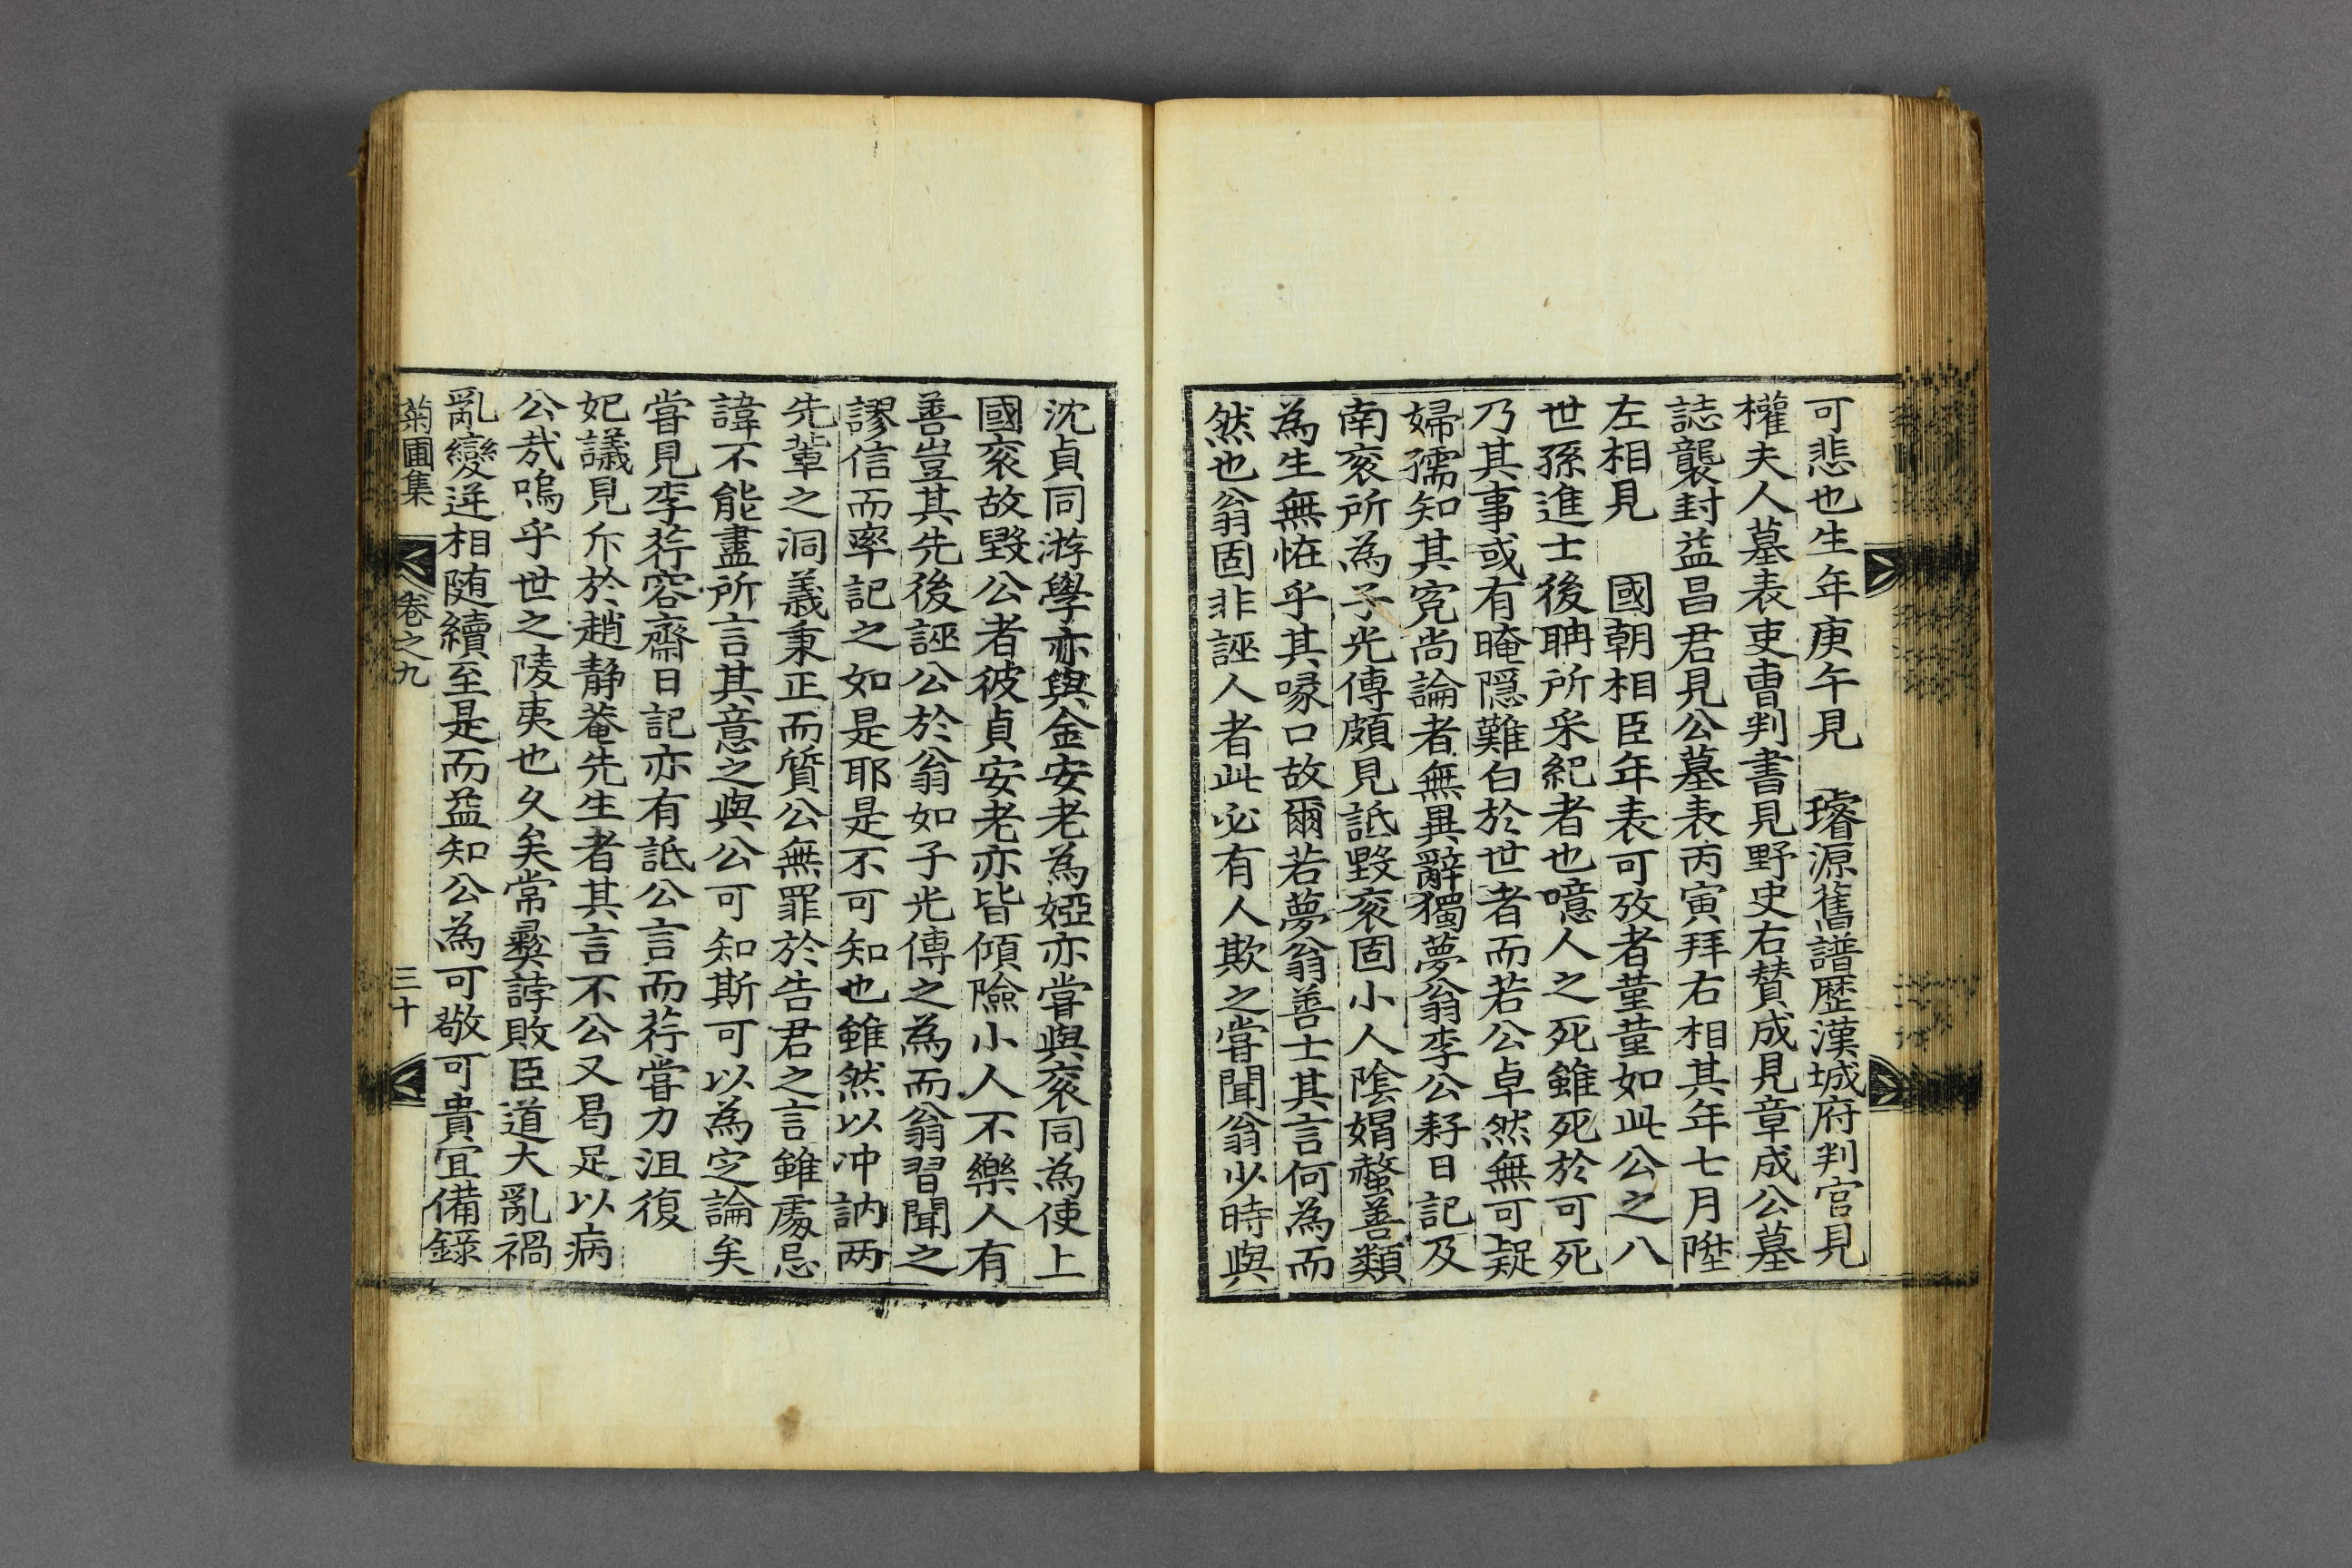 可悲也生年庚午見 璿源舊譜歷漢城府判官見
權夫人墓表吏曹判書見野史右賛成見章成公墓
誌襲封益昌君見公墓表丙寅拜右相其年七月陞
左相見 國朝相臣年表可攷者菫菫如此公之八
世孫進士後聃所采紀者也噫人之死雖死於可死
乃其事或有晻隠難白於世者而若公卓然無可疑
婦孺知其寃尚論者無異辭獨夢翁李公耔日記及
南衮所為子光傳頗見詆毀衮固小人陰媢螫善類
為生無恠乎其喙口故爾若夢翁善士其言何為而
然也翁固非誣人者此必有人欺之嘗聞翁少時與
沈貞同游學亦與金安老為婭亦嘗與衮同為使上
國衮故毀公者彼貞安老亦皆傾險小人不樂人有
善豈其先後誣公於翁如子光傳之為而翁習聞之
謬信而率記之如是耶是不可知也雖然以冲訥两
先輩之洞義秉正而質公無罪於告君之言雖處忌
諱不能盡所言其意之與公可知斯可以為定論矣
嘗見李荇容齋日記亦有詆公言而荇嘗力沮復
妃議見斥於趙静菴先生者其言不公又曷足以病
公㢤嗚乎世之陵夷也久矣常彛誖敗臣道大亂禍
亂變迸相随續至是而益知公為可敬可貴宜備錄
菊圃集 卷之九 三十